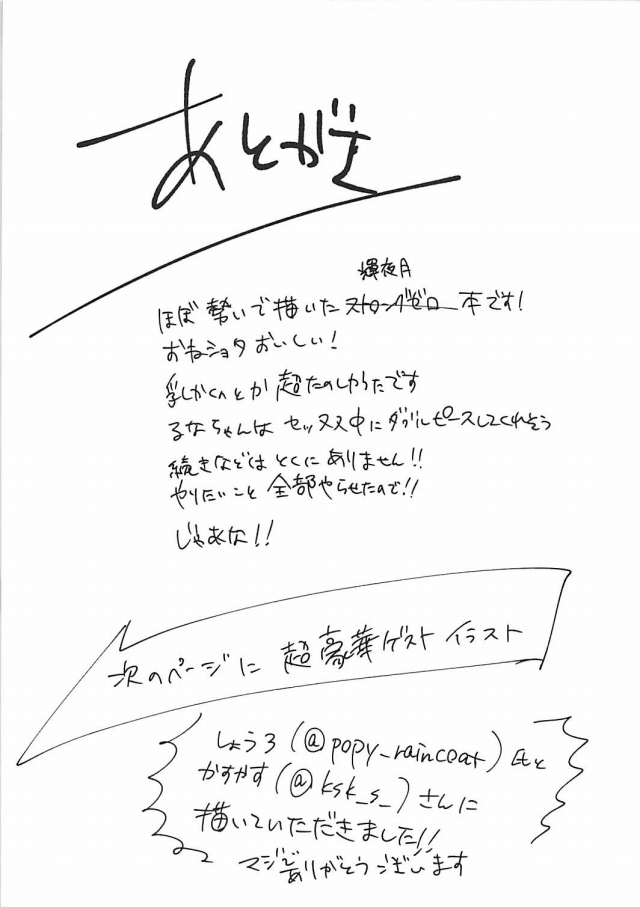 あとがき
輝夜月
ほぼ勢いで描いたストロングゼロ本です!
おねショタおいしい!
乳しかくんとか超たのしかったです
るなちゃんはセッヌス中にダブルピースしてくれそう
続きなどはとくにありません!!
やりたいこと全部やらせたので!!
じゃあな!!
次のページに超豪華ゲストイラスト
しょうろ(@popy_raincoat)氏と
かすやす(@ksk_s_)さんに
描いていただきました!!
マジでありがとうございます